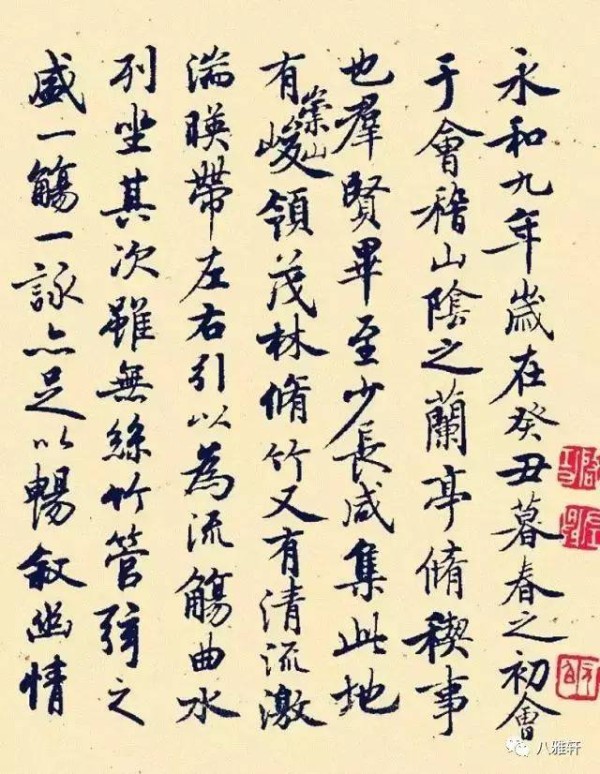 永和九年歲在癸丑暮春之初會
于會稽山陰之蘭亭脩稧事
也羣賢畢至少長咸集此地
有崇山峻領茂林脩竹又有清流激
湍暎帶左右引以為流觴曲水
列坐其次雖無絲竹管弦之
盛一觴一詠亦足以暢敘幽情
八雅轩